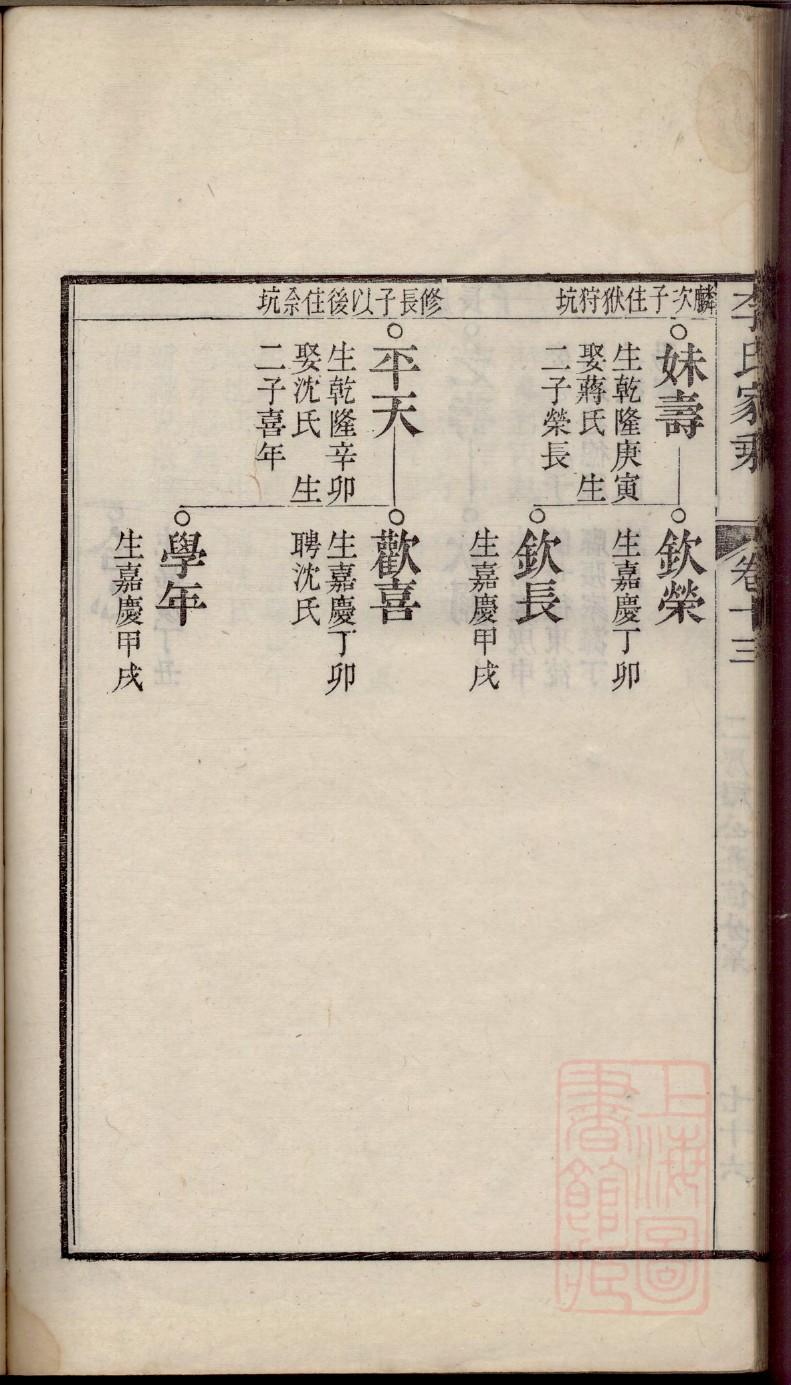 李氏家乘 卷十三
麟次子住獄狩坑
妹壽
生乾隆庚寅
娶蔣氏 生
二子榮長
欽榮
生嘉慶丁卯
欽長
生嘉慶甲戌
修長子以後住佘坑
平天
生乾隆辛卯
娶沈氏 生
二子喜年
歡喜
生嘉慶丁卯
聘沈氏
學年
生嘉慶甲戌
上海圖
書館藏